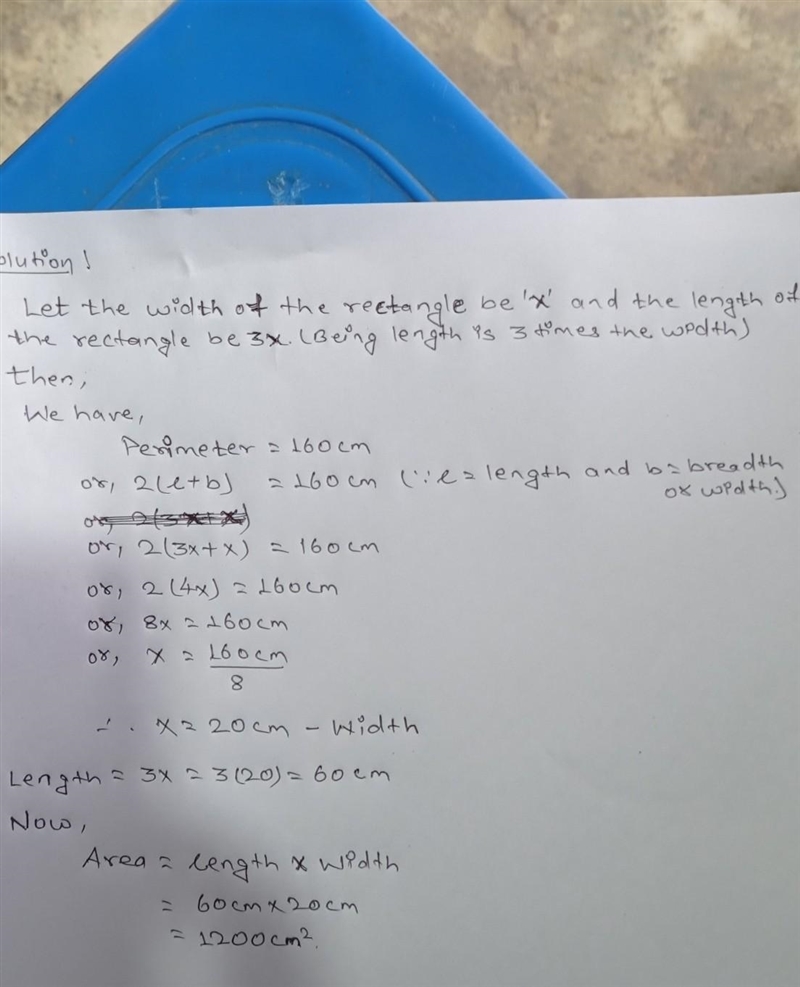 olution!
Let the width of the rectangle be 'x' and the length of
the rectangle be 3x. (Being length is 3 times the width)
then,
We have,
Perimeter = 160cm
or, 2(l+b) = 160cm (∵ l = length and b = breadth
or width.)
or, 2(3x+x)
or, 2(3x+x) = 160cm
or, 2(4x) = 160cm
or, 8x = 160cm
or, x = 160cm
8
∴ x = 20cm - width
Length = 3x = 3(20) = 60cm
Now,
Area = length x width
= 60cm x 20cm
= 1200cm².